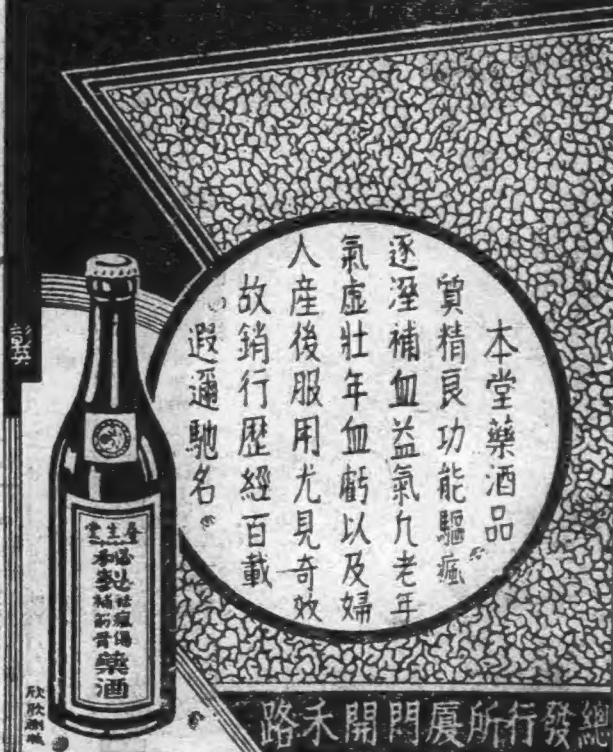 本堂藥酒品
質精良功能驅瘋
逐溼補血益氣凡老年
氣虛壯年血虧以及婦
人產後服用尤見奇效
故銷行歷經百載
遐邇馳名
堂生
補筋骨
藥酒
總發行所厦門開禾路